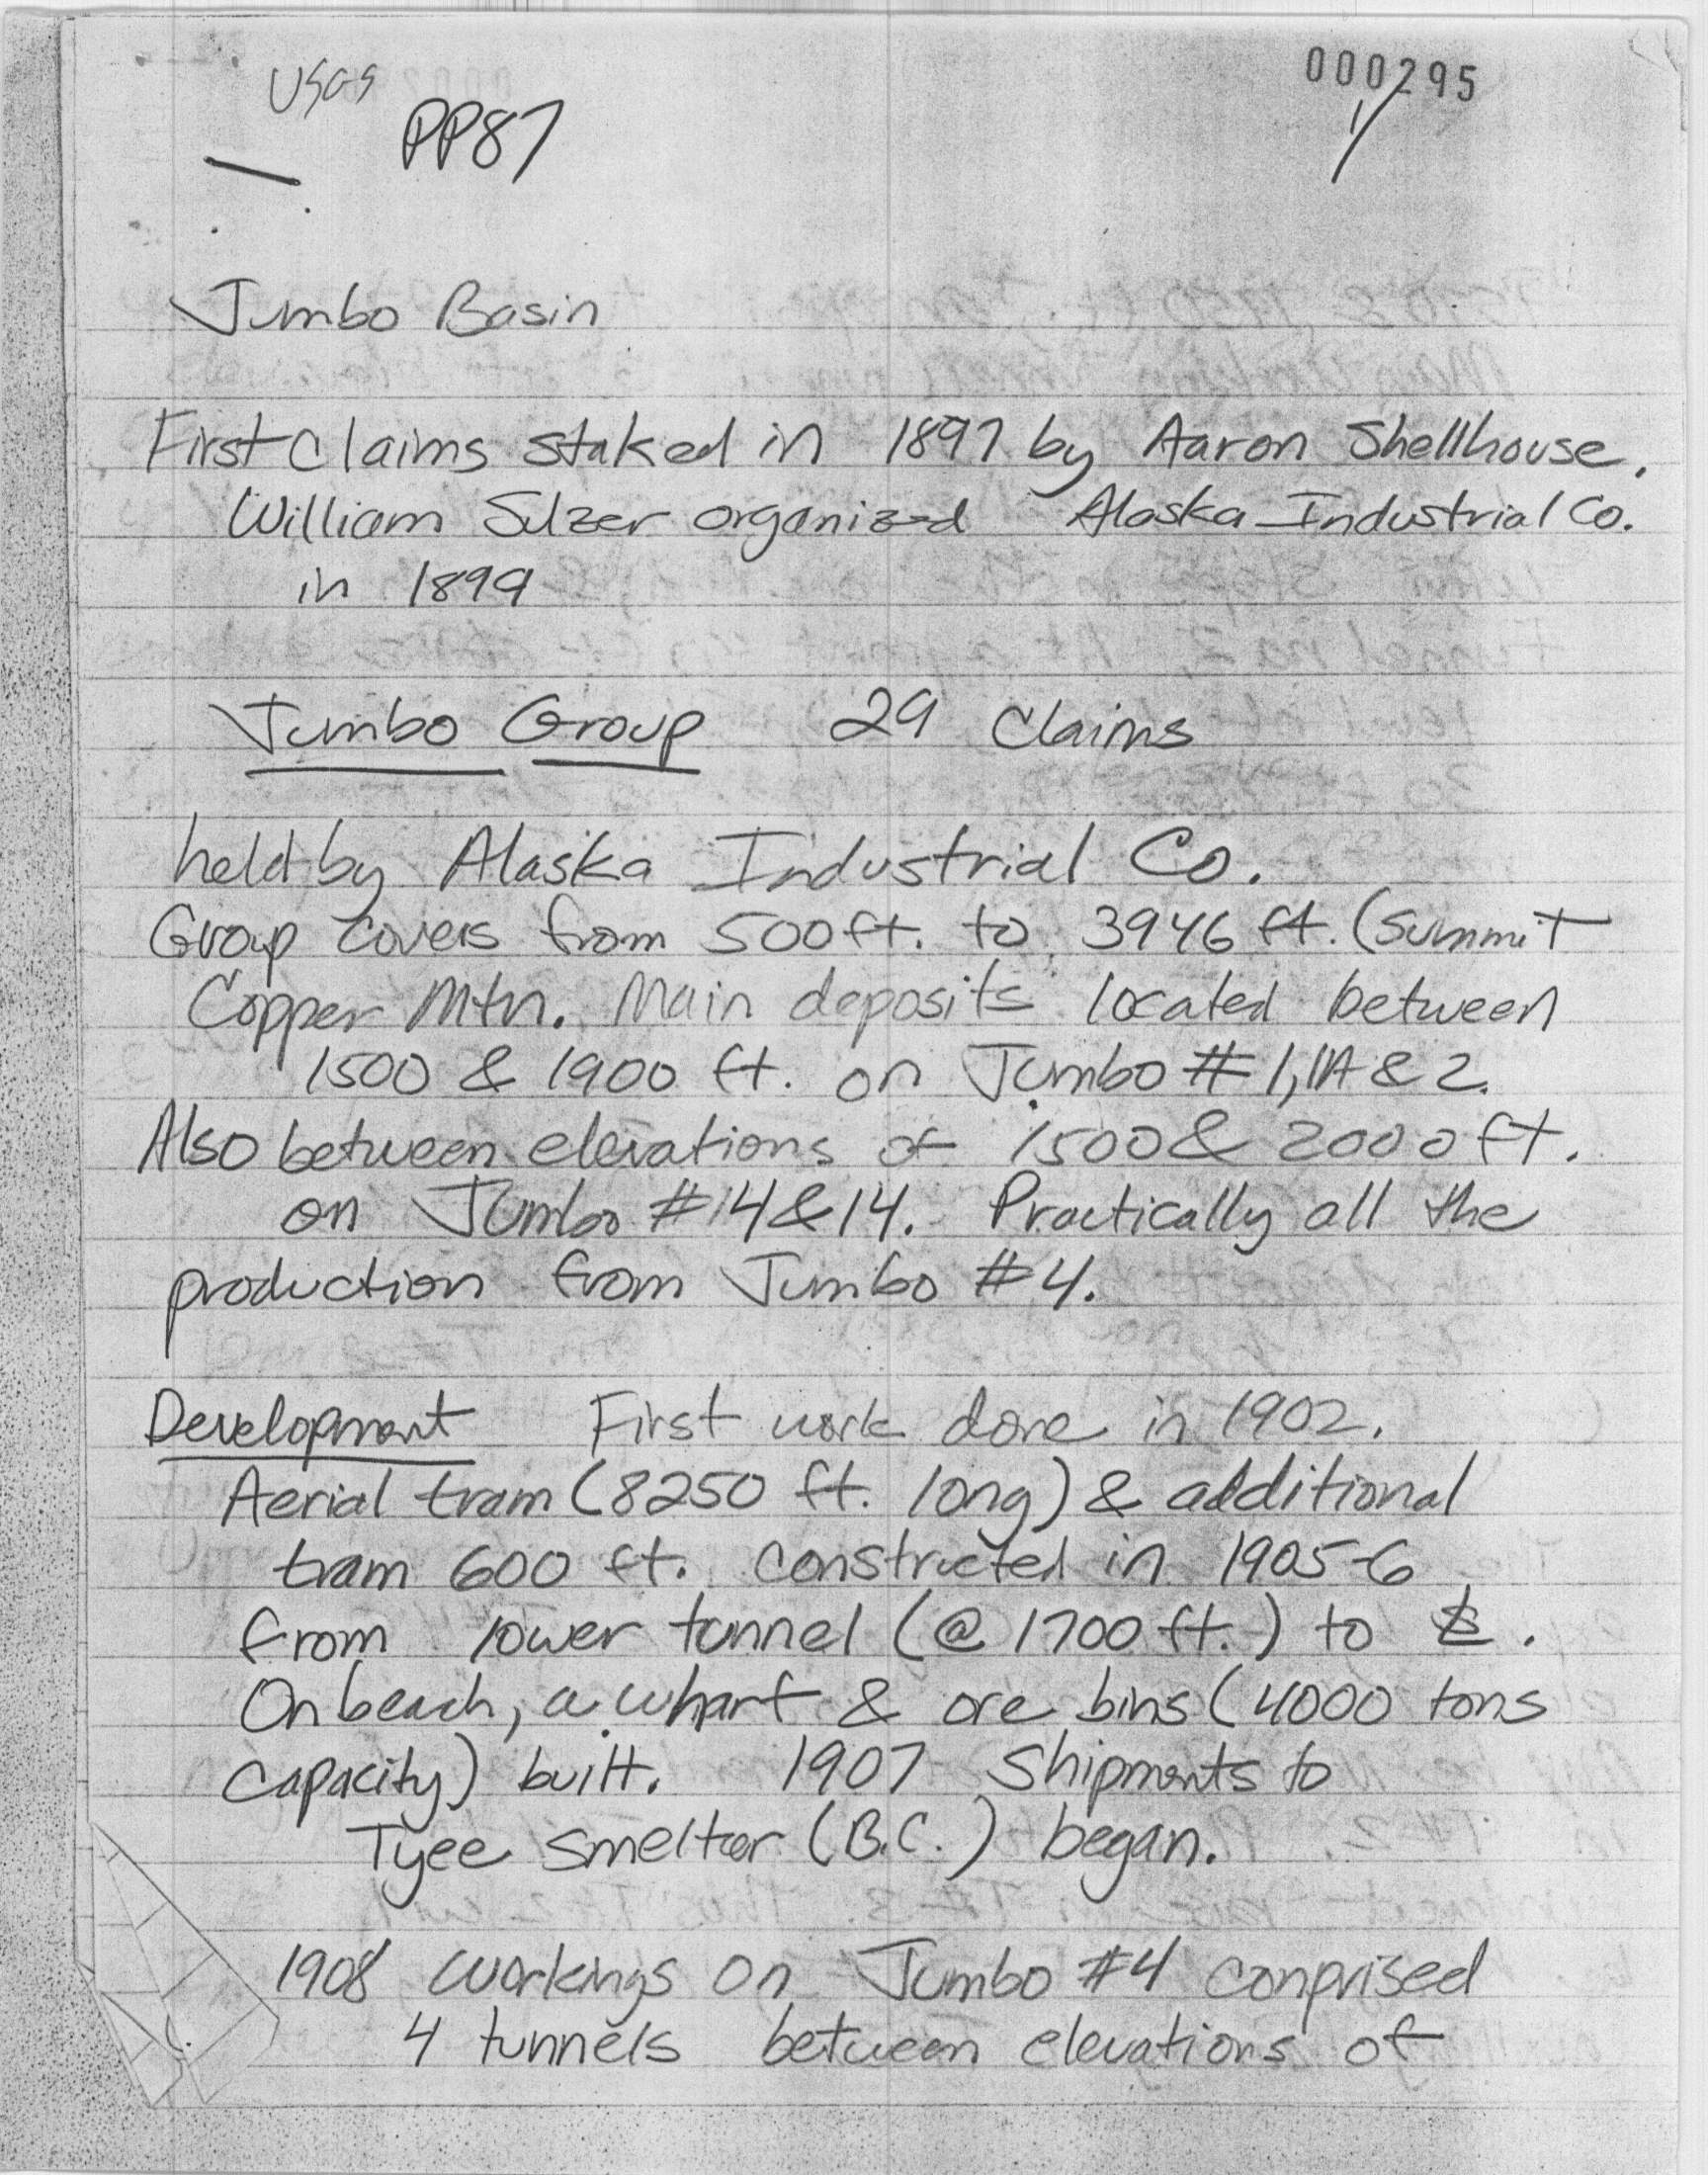 USGS
PP87
000295
1/
Jumbo Basin
First claims staked in 1897 by Aaron Shellhouse.
William Sulzer organized Alaska Industrial Co.
in 1899
Jumbo Group 29 Claims
held by Alaska Industrial Co.
Group covers from 500 ft. to 3946 ft. (Summit
Copper Mtn. Main deposits located between
1500 & 1900 ft. on Jumbo # 1, 1A & 2.
Also between elevations of 1500 & 2000 ft.
on Jumbo # 4 & 14. Practically all the
production from Jumbo #4.
Development First work done in 1902.
Aerial tram (8250 ft. long) & additional
tram 600 ft. constructed in 1905-6
from lower tunnel (@ 1700 ft.) to .
On beach, a wharf & ore bins (4000 tons
capacity) built. 1907 Shipments to
Tyee smelter (B.C.) began.
1908 workings on Jumbo #4 comprised
4 tunnels between elevations of